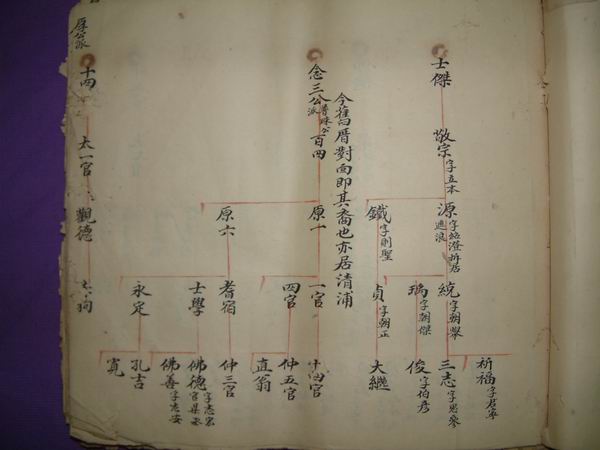 士傑
敬宗字立本
源字絃澄析居遮浪
鐵字則聖
統字朝舉
瑀字朝傑
貞字朝正
祈福字君寧
三志字君參
俊字怕彥
大繼
念三公派
百四
今舊厝對向即其裔也亦居清浦
原一
原六
一官
四官
耆宿
士學
永定
十四官
仲五官
直翁
仲三官
佛德字志宏
佛善字志安
孔吉
寬
厚公派
十四
太一官
觀德